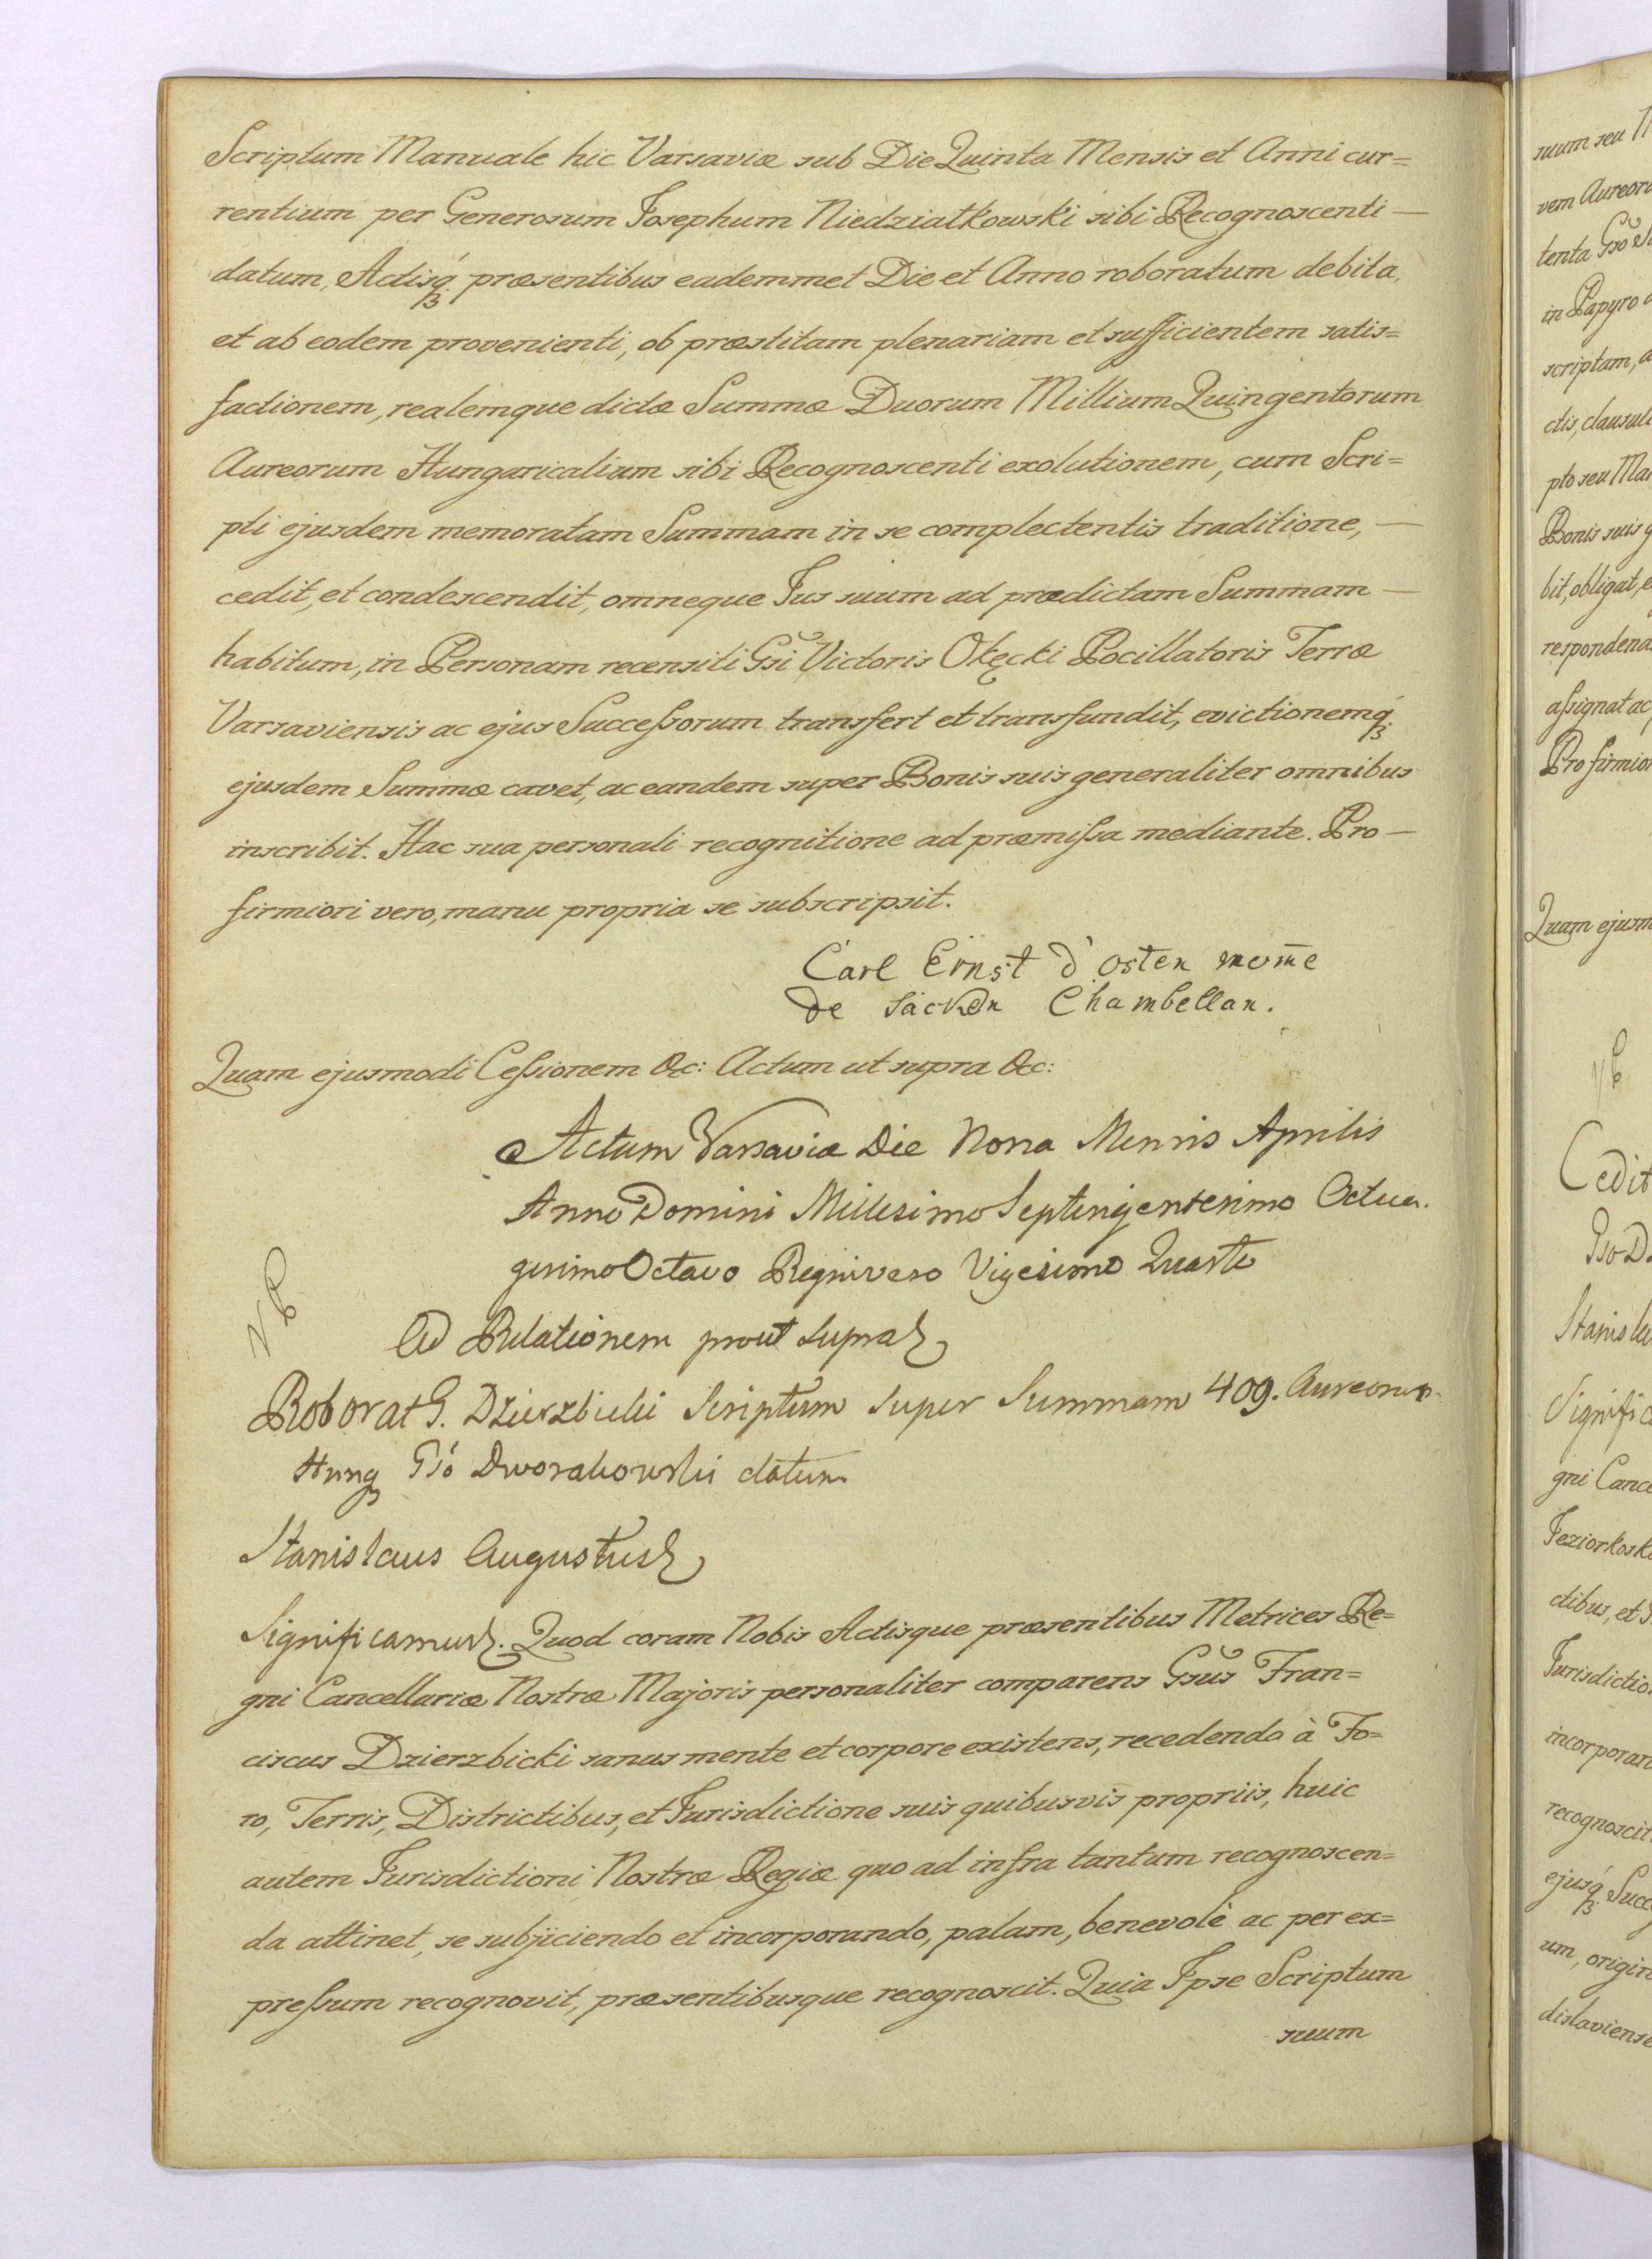 Scriptum Manuale hic Varsaviæ sub Die Quinta Mensis et Anni cur=
rentium per Generosum Josephum Niedziałkowski sibi Recognoscenti —
datum, Actisq́ʒ præsentibus eademmet Die et Anno roboratum debita,
et ab eodem provenienti, ob præstitam plenariam et sufficientem satis=
factionem, realemque dictæ Summæ Duorum Millium Quingentorum
Aureorum Hungaricalium sibi Recognoscenti exolutionem, cum Scri=
pti ejusdem memoratam Summam in se complectentis traditione, —
cedit, et condescendit, omneque Jus suum ad prædictam Summam —
habitum, in Personam recensiti Gsi Victoris Okęcki Pocillatoris Terræ
Varsaviensis ac ejus Successorum transfert et transfundit, evictionemq́ʒ
ejusdem Summæ cavet, ac eandem super Bonis suis generaliter omnibus
inscribit. Hac sua personali recognitione ad præmissa mediante. Pro —
firmiori vero, manu propria se subscripsit.
Carl Ernst d'Osten
de Säcken Chambellan.
Quam ejusmodi Cessionem &c: Actum ut supra &c:
Actum Varsaviæ Die Nona Mensis Aprilis
Anno Domini Millesimo Septingentesimo Octua.
gesimo Octavo Regni vero Vigesimo Quarto
NB
Ad Relationem prout supra
Roborat G. Dzierzbicki Scriptum super Summam 409. Aureorum
Hung Gso Dworakowski datum
Stanislaus Augustus
Significamus. Quod coram Nobis Actisque præsentibus Metrices Re=
gni Cancellariæ Nostræ Majoris personaliter comparens Gsus Fran=
ciscus Dzierzbicki sanus mente et corpore existens, recedendo à Fo=
ro, Terris, Districtibus, et Jurisdictione suis quibusvis propriis, huic
autem Jurisdictioni Nostræ Regiæ quo ad infra tantum recognoscen=
da attinet, se subjiciendo et incorporando, palam, benevolè ac per ex=
pressum recognovit, præsentibusque recognoscit. Quia Ipse Scriptum
suum
suum seu
vem Aureor
tenta Gso
in Papyro
scriptam, a
ctis, clausul
pto seu Man
Bonis suis g
bit, obligat, e
respondend
assignat ac
Pro firmior
Quam ejusm
NB
Cedit
Gso D
Stanisla
Significa
gni Cance
Jeziorkosk
ctibus, et
Jurisdictio
incorporan
recognoscit
ejusq́ʒ Succ
um, origin
dislaviense